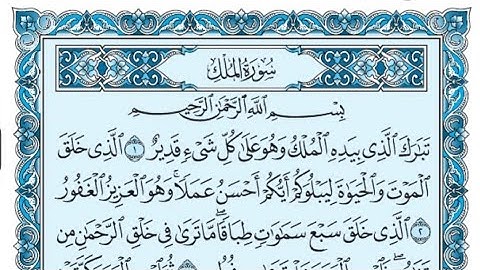 سُورَةُ المُلْكِ
بِسْمِ ٱللَّهِ ٱلرَّحْمَٰنِ ٱلرَّحِيمِ
تَبَٰرَكَ ٱلَّذِى بِيَدِهِ ٱلْمُلْكُ وَهُوَ عَلَىٰ كُلِّ شَىْءٍ قَدِيرٌ ١ ٱلَّذِى خَلَقَ
ٱلْمَوْتَ وَٱلْحَيَوٰةَ لِيَبْلُوَكُمْ أَيُّكُمْ أَحْسَنُ عَمَلًا ۚ وَهُوَ ٱلْعَزِيزُ ٱلْغَفُورُ
٢ ٱلَّذِى خَلَقَ سَبْعَ سَمَٰوَٰتٍ طِبَاقًا ۖ مَّا تَرَىٰ فِى خَلْقِ ٱلرَّحْمَٰنِ مِن